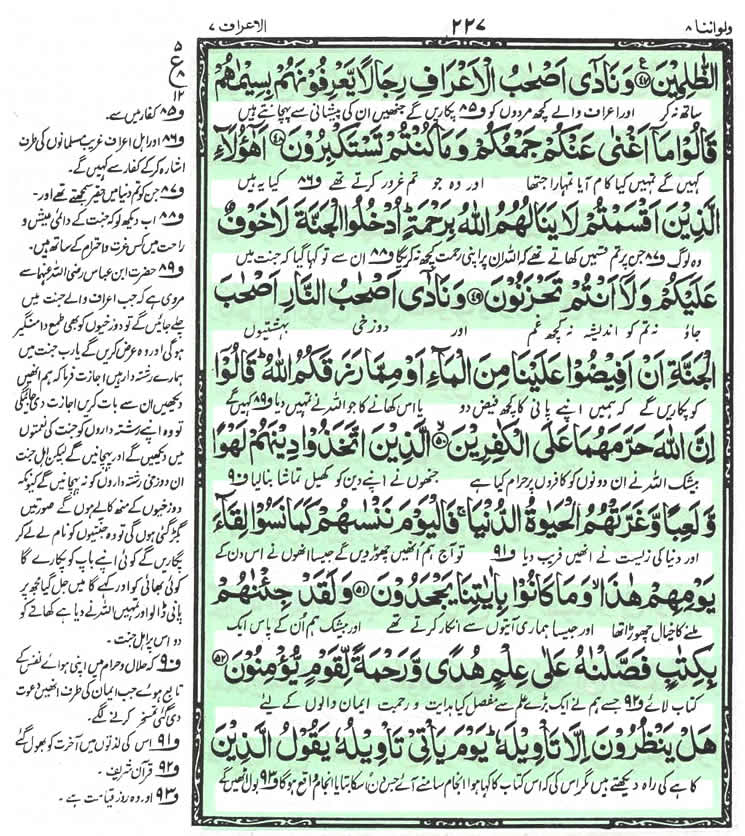 ولواننا ۸
۲۲۷
الاعراف ۷
الظّٰلِمِیْنَ ﴿۴۷﴾ وَنَادٰۤی اَصْحٰبُ الْاَعْرَافِ رِجَالًا یَّعْرِفُوْنَهُمْ بِسِیْمٰىهُمْ
ساتھ نہ کر اور اعراف والے کچھ مردوں کو و۸۵ پکاریں گے جنھیں ان کی پیشانی سے پہچانتے ہیں
قَالُوْا مَاۤ اَغْنٰی عَنْكُمْ جَمْعُكُمْ وَمَا كُنْتُمْ تَسْتَكْبِرُوْنَ ﴿۴۸﴾ اَهٰۤؤُلَآءِ
کہیں گے تمہیں کیا کام آیا تمہارا جتھا اور وہ جو تم غرور کرتے تھے و۸۶ کیا یہ ہیں
الَّذِیْنَ اَقْسَمْتُمْ لَا یَنَالُهُمُ اللّٰهُ بِرَحْمَةٍ ؕ اُدْخُلُوا الْجَنَّةَ لَا خَوْفٌ
وہ لوگ و۸۷ جن پر تم قسمیں کھاتے تھے کہ اللہ ان پر اپنی رحمت کچھ نہ کریگا و۸۸ ان سے تو کہا گیا کہ جنت میں
عَلَیْكُمْ وَلَاۤ اَنْتُمْ تَحْزَنُوْنَ ﴿۴۹﴾ وَنَادٰۤی اَصْحٰبُ النَّارِ اَصْحٰبَ
جاؤ نہ تم کو اندیشہ نہ کچھ غم اور دوزخی بہشتیوں
الْجَنَّةِ اَنْ اَفِیْضُوْا عَلَیْنَا مِنَ الْمَآءِ اَوْ مِمَّا رَزَقَكُمُ اللّٰهُ ؕ قَالُوْۤا
کو پکاریں گے کہ ہمیں اپنے پانی کا کچھ فیض دو یا اس کھانے کا جو اللہ نے تمہیں دیا و۸۹ کہیں گے
اِنَّ اللّٰهَ حَرَّمَهُمَا عَلَی الْكٰفِرِیْنَ ﴿۵۰﴾ الَّذِیْنَ اتَّخَذُوْا دِیْنَهُمْ لَهْوًا
بیشک اللہ نے ان دونوں کو کافروں پر حرام کیا ہے جنھوں نے اپنے دین کو کھیل تماشا بنا لیا و۹۰
وَّلَعِبًا وَّغَرَّتْهُمُ الْحَیٰوةُ الدُّنْیَا ۚ فَالْیَوْمَ نَنْسٰىهُمْ كَمَا نَسُوْا لِقَآءَ
اور دنیا کی زیست نے انھیں فریب دیا و۹۱ تو آج ہم انھیں چھوڑ دیں گے جیسا انھوں نے اس دن کے
یَوْمِهِمْ هٰذَا ۙ وَمَا كَانُوْا بِاٰیٰتِنَا یَجْحَدُوْنَ ﴿۵۱﴾ وَلَقَدْ جِئْنٰهُمْ
ملنے کا خیال چھوڑا تھا اور جیسا ہماری آیتوں سے انکار کرتے تھے اور بیشک ہم اُن کے پاس ایک
بِكِتٰبٍ فَصَّلْنٰهُ عَلٰی عِلْمٍ هُدًی وَّرَحْمَةً لِّقَوْمٍ یُّؤْمِنُوْنَ ﴿۵۲﴾
کتاب لائے و۹۲ جسے ہم نے ایک بڑے علم سے مفصل کیا ہدایت و رحمت ایمان والوں کے لیے
هَلْ یَنْظُرُوْنَ اِلَّا تَاْوِیْلَهٗ ؕ یَوْمَ یَاْتِیْ تَاْوِیْلُهٗ یَقُوْلُ الَّذِیْنَ
کاہے کی راہ دیکھتے ہیں مگر اس کی کہ اس کتاب کا کہا ہوا انجام سامنے آئے جس دن اسکا بتایا انجام واقع ہوگا و۹۳ بول اٹھیں گے
۵
ع
۸
۱۲
و۸۵ کفار میں سے۔
و۸۶ اور اہل اعراف غریب مسلمانوں کی طرف
اشارہ کر کے کفار سے کہیں گے۔
و۸۷ جن کو تم دنیا میں حقیر سمجھتے تھے اور۔
و۸۸ اب دیکھ لو کہ جنت کے دائمی عیش و
راحت میں کس عزت و احترام کے ساتھ ہیں۔
و۸۹ حضرت ابن عباس رضی اللہ عنہما سے
مروی ہے کہ جب اعراف والے جنت میں
چلے جائیں گے تو دوزخیوں کو بھی طمع دامنگیر
ہوگی اور وہ عرض کریں گے یارب جنت میں
ہمارے رشتہ دار ہیں اجازت فرما کہ ہم انھیں
دیکھیں ان سے بات کریں اجازت دی جائیگی
تو وہ اپنے رشتہ داروں کو جنت کی نعمتوں
میں دیکھیں گے اور پہچانیں گے لیکن اہل جنت
ان دوزخی رشتہ داروں کو نہ پہچانیں گے کیونکہ
دوزخیوں کے منھ کالے ہوں گے صورتیں
بگڑ گئی ہوں گی تو وہ جنتیوں کو نام لے لے کر
پکاریں گے کوئی اپنے باپ کو پکارے گا
کوئی بھائی کو اور کہے گا میں جل گیا مجھ پر
پانی ڈالو اور تمہیں اللہ نے دیا ہے کھانے کو
دو اس پر اہل جنت۔
و۹۰ کہ حلال و حرام میں اپنی ہوائے نفس کے
تابع ہوئے جب ایمان کی طرف انھیں دعوت
دی گئی تمسخر کرنے لگے۔
و۹۱ اس کی لذتوں میں آخرت کو بھول گئے
و۹۲ قرآن شریف۔
و۹۳ اور وہ روز قیامت ہے۔